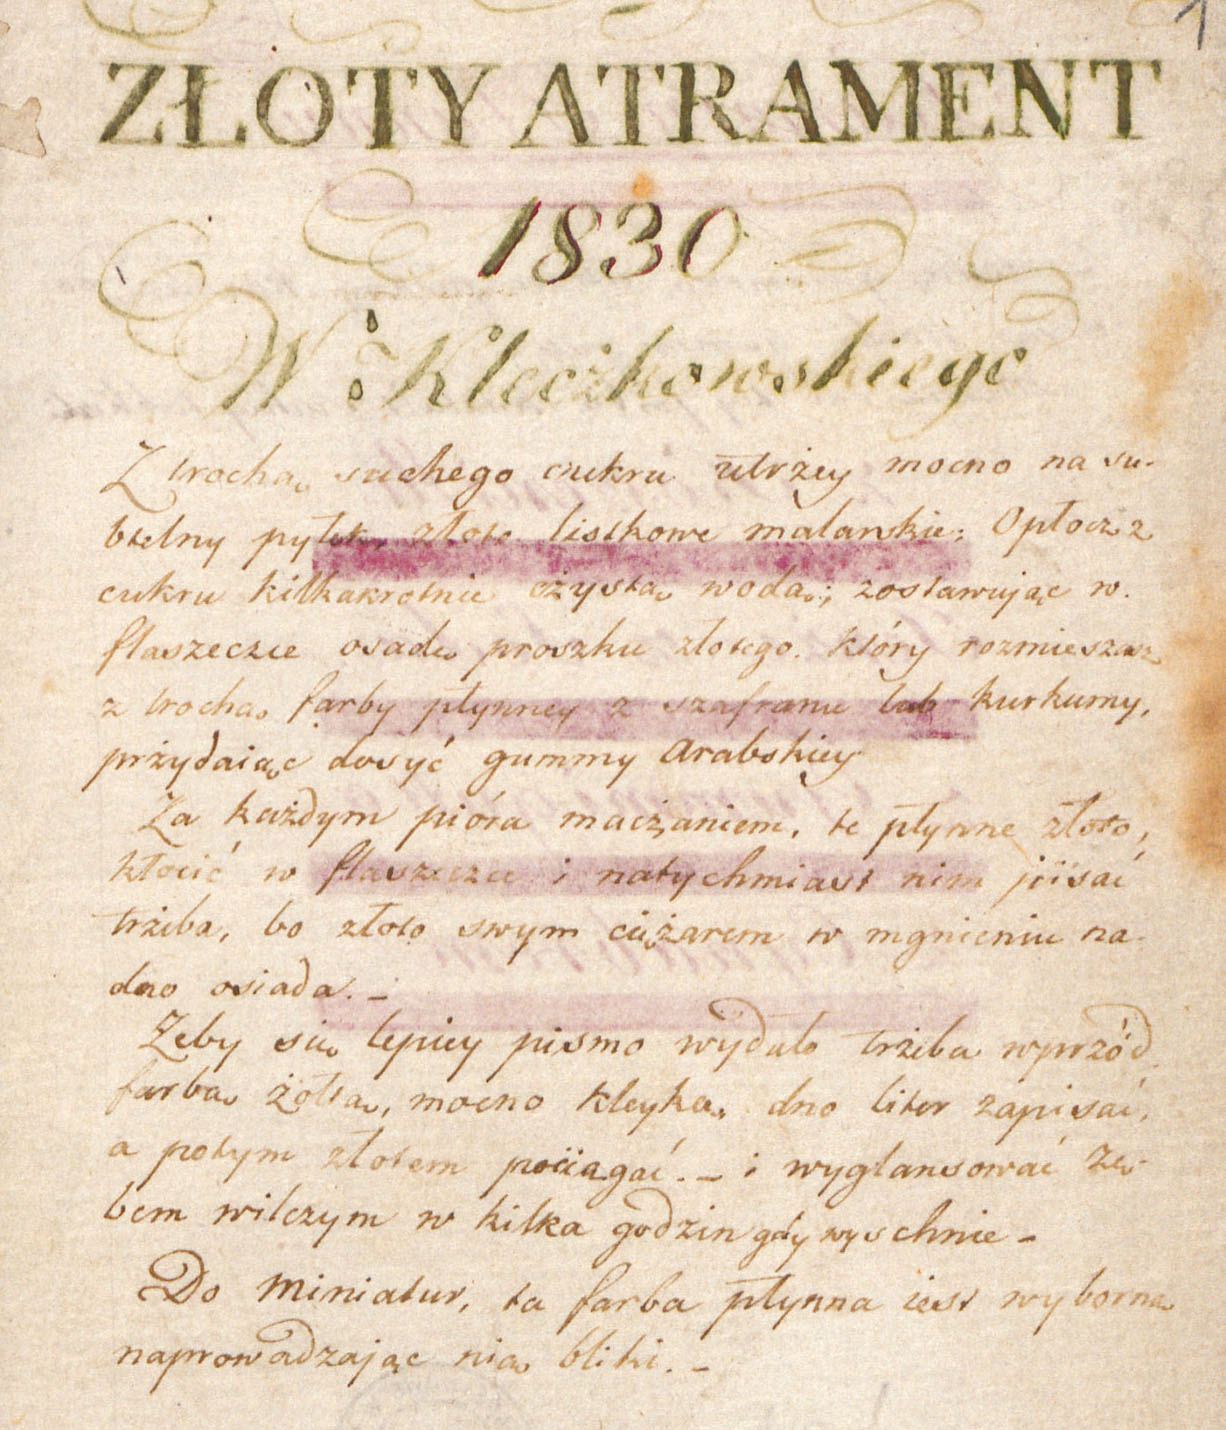 1
ZŁOTY ATRAMENT
1830
W: Kleczkowskiego
Z trochą suchego cukru utrżey mocno na su-
btelny pyłek, złoto listkowe malarskie; Opłocz z
cukru kilkakrotnie czystą wodą; zostawując w
flaszeczce osadę proszku złotego. który rozmieszasz
z trochą farby płynney z szafranu lub kurkumy,
prżydaiąc dosyć gummy Arabskiey
Za każdym pióra maczaniem, te płynne złoto,
kłócić w flaszeczce i natychmiast nim piisać
trżeba, bo złoto swym ciężarem w mgnieniu na-
dno osiada. —
Żeby się lepiey pismo wydało trżeba wprzód
farbą żółtą, mocno kleyką, dno liter zapisać,
a potym złotem pociągać. — i wyglansować zę-
bem wilczym w kilka godzin gdy wyschnie —
Do Miniatur, ta farba płynna iest wyborna
naprowadzając nią bliki. —